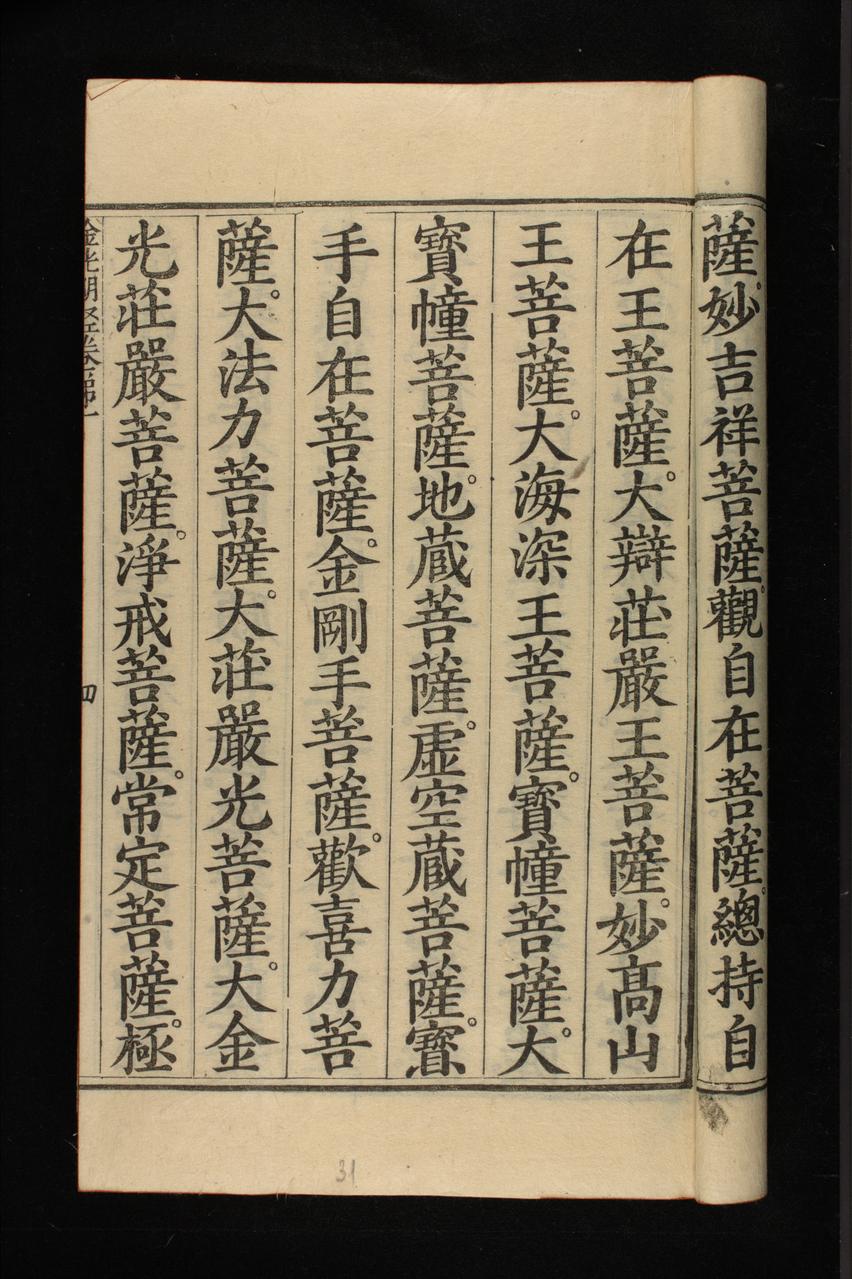 薩。妙吉祥菩薩。觀自在菩薩。總持自
在王菩薩。大辯莊嚴王菩薩。妙高山
王菩薩。大海深王菩薩。寶幢菩薩。大
寶幢菩薩。地蔵菩薩。虛空蔵菩薩。寶
手自在菩薩。金剛手菩薩。歡喜力菩
薩。大法力菩薩。大莊嚴光菩薩。大金
光莊嚴菩薩。淨戒菩薩。常定菩薩。極
金光明經卷第一
四
31